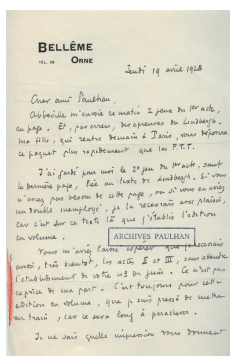 BELLÊME
TÉL. 28 ORNE
Jeudi 19 avril 1928
Cher ami Paulhan,
Abbeville m'envoie ce matin 2 jeux du 1er acte,
en page. Et, par erreur, des épreuves du Lindbergh.
Ma fille, qui rentre demain à Paris, vous déposera
ce paquet plus rapidement que les P.T.T.
J'ai gardé pour moi le 2e jeu du 1er acte, sauf
la dernière page, liée au texte de Lindbergh. Si vous
n'avez pas besoin de cette page, ou si vous en aviez
un double inemployé, je la recevrais avec plaisir,
car c'est sur ce texte là que j'établis l'édition
en volume.
ARCHIVES PAULHAN
Vous m'aviez laissé espérer que je recevrais
aussi, très bientôt, les actes II et III, sans attendre
l'établissement de votre n° de juin. Ce n'est pas
caprice de ma part. C'est toujours pour cette
édition en volume, que je suis pressé de mettre
en train, car ce sera long à parachever.
Je ne sais quelle impression vous donnent